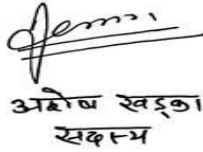 अशोष खड्का
सदस्य